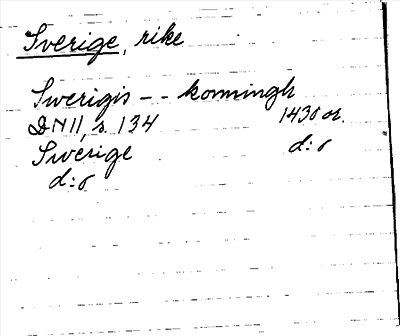 Sverige, rike
Swerigis -- konningh
DN II, s. 134 1430 or.
Swerige d:o
d:o